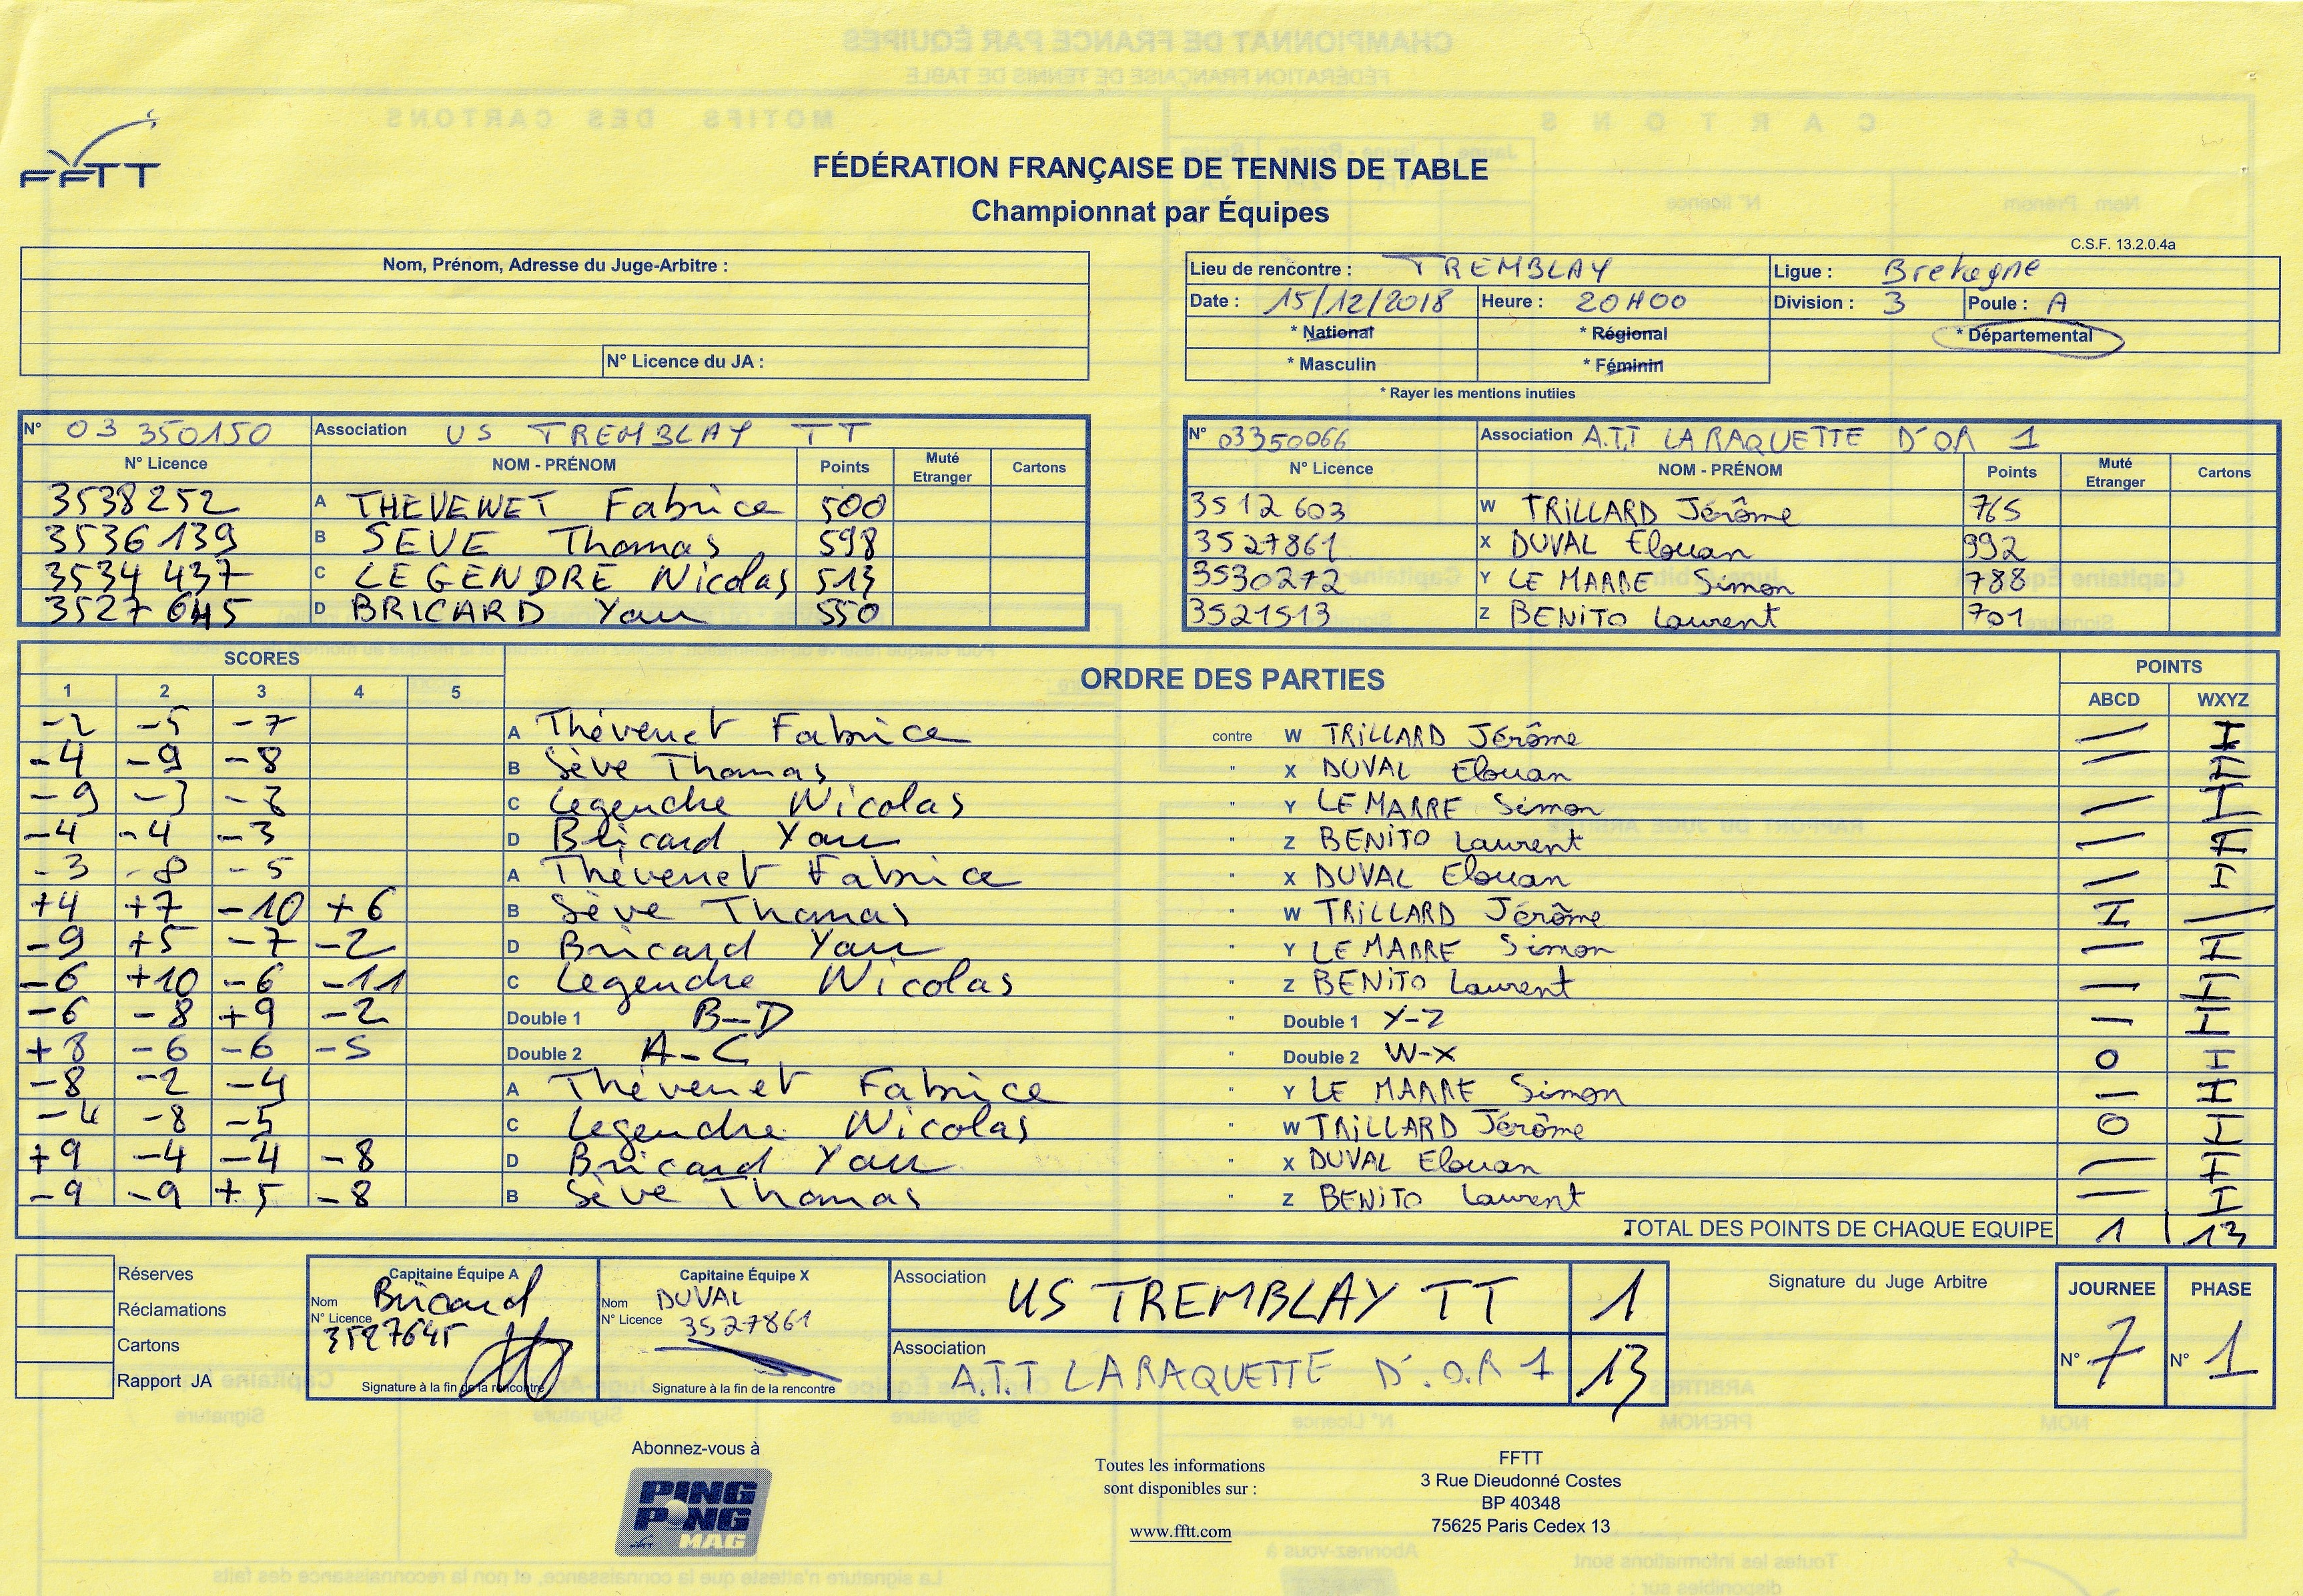 FFTT
FÉDÉRATION FRANÇAISE DE TENNIS DE TABLE
Championnat par Équipes
C.S.F. 13.2.0.4a
Nom, Prénom, Adresse du Juge-Arbitre :
N° Licence du JA :
Lieu de rencontre : TREMBLAY Ligue : Bretagne
Date : 15/12/2018 Heure : 20H00 Division : 3 Poule : A
* National * Régional * Départemental
* Masculin * Féminin
* Rayer les mentions inutiles
N° 03 350150 Association US TREMBLAY TT
N° Licence NOM - PRÉNOM Points Muté Etranger Cartons
3538252 A THEVENET Fabrice 500
3536139 B SEVE Thomas 598
3534 437 C LEGENDRE Nicolas 513
3527 645 D BRICARD Yan 550
N° 03350066 Association A.T.T LA RAQUETTE D'OR 1
N° Licence NOM - PRÉNOM Points Muté Etranger Cartons
3512 603 W TRILLARD Jérôme 765
3527861 X DUVAL Elouan 992
3530272 Y LE MARRE Simon 788
3521513 Z BENITO Laurent 701
SCORES ORDRE DES PARTIES POINTS
1 2 3 4 5 ABCD WXYZ
-2 -5 -7 A Thévenet Fabrice contre W TRILLARD Jérôme
-4 -9 -8 B Sève Thomas " X DUVAL Elouan
-9 -3 C Legendre Nicolas " Y LE MARRE Simon
-4 -4 -3 D Bricard Yan " Z BENITO Laurent
-3 -8 -5 A Thévenet Fabrice " X DUVAL Elouan
+4 +7 -10 +6 B Sève Thomas " W TRILLARD Jérôme I /
-9 +5 -7 -2 D Bricard Yan " Y LE MARRE Simon
-6 +10 -6 -11 C Legendre Nicolas " Z BENITO Laurent
-6 -8 +9 -2 Double 1 B-D " Double 1 Y-Z
+8 -6 -6 -5 Double 2 A-C " Double 2 W-X 0 I
-8 -2 -4 A Thévenet Fabrice " Y LE MARRE Simon
-4 -8 -5 C Legendre Nicolas " W TRILLARD Jérôme 0 I
+9 -4 -4 -8 D Bricard Yan " X DUVAL Elouan
-9 -9 +5 -8 B Sève Thomas " Z BENITO Laurent
TOTAL DES POINTS DE CHAQUE EQUIPE 1 13
Réserves
Réclamations
Cartons
Rapport JA
Capitaine Équipe A
Nom Bricard
N° Licence
3527645
Signature à la fin de la rencontre
Capitaine Équipe X
Nom DUVAL
N° Licence 3527861
Signature à la fin de la rencontre
Association US TREMBLAY TT 1
Association A.T.T LA RAQUETTE D'.O.R 1 13
Signature du Juge Arbitre
JOURNEE PHASE
N° 7 N° 1
Abonnez-vous à
PING PONG MAG
Toutes les informations
sont disponibles sur :
www.fftt.com
FFTT
3 Rue Dieudonné Costes
BP 40348
75625 Paris Cedex 13